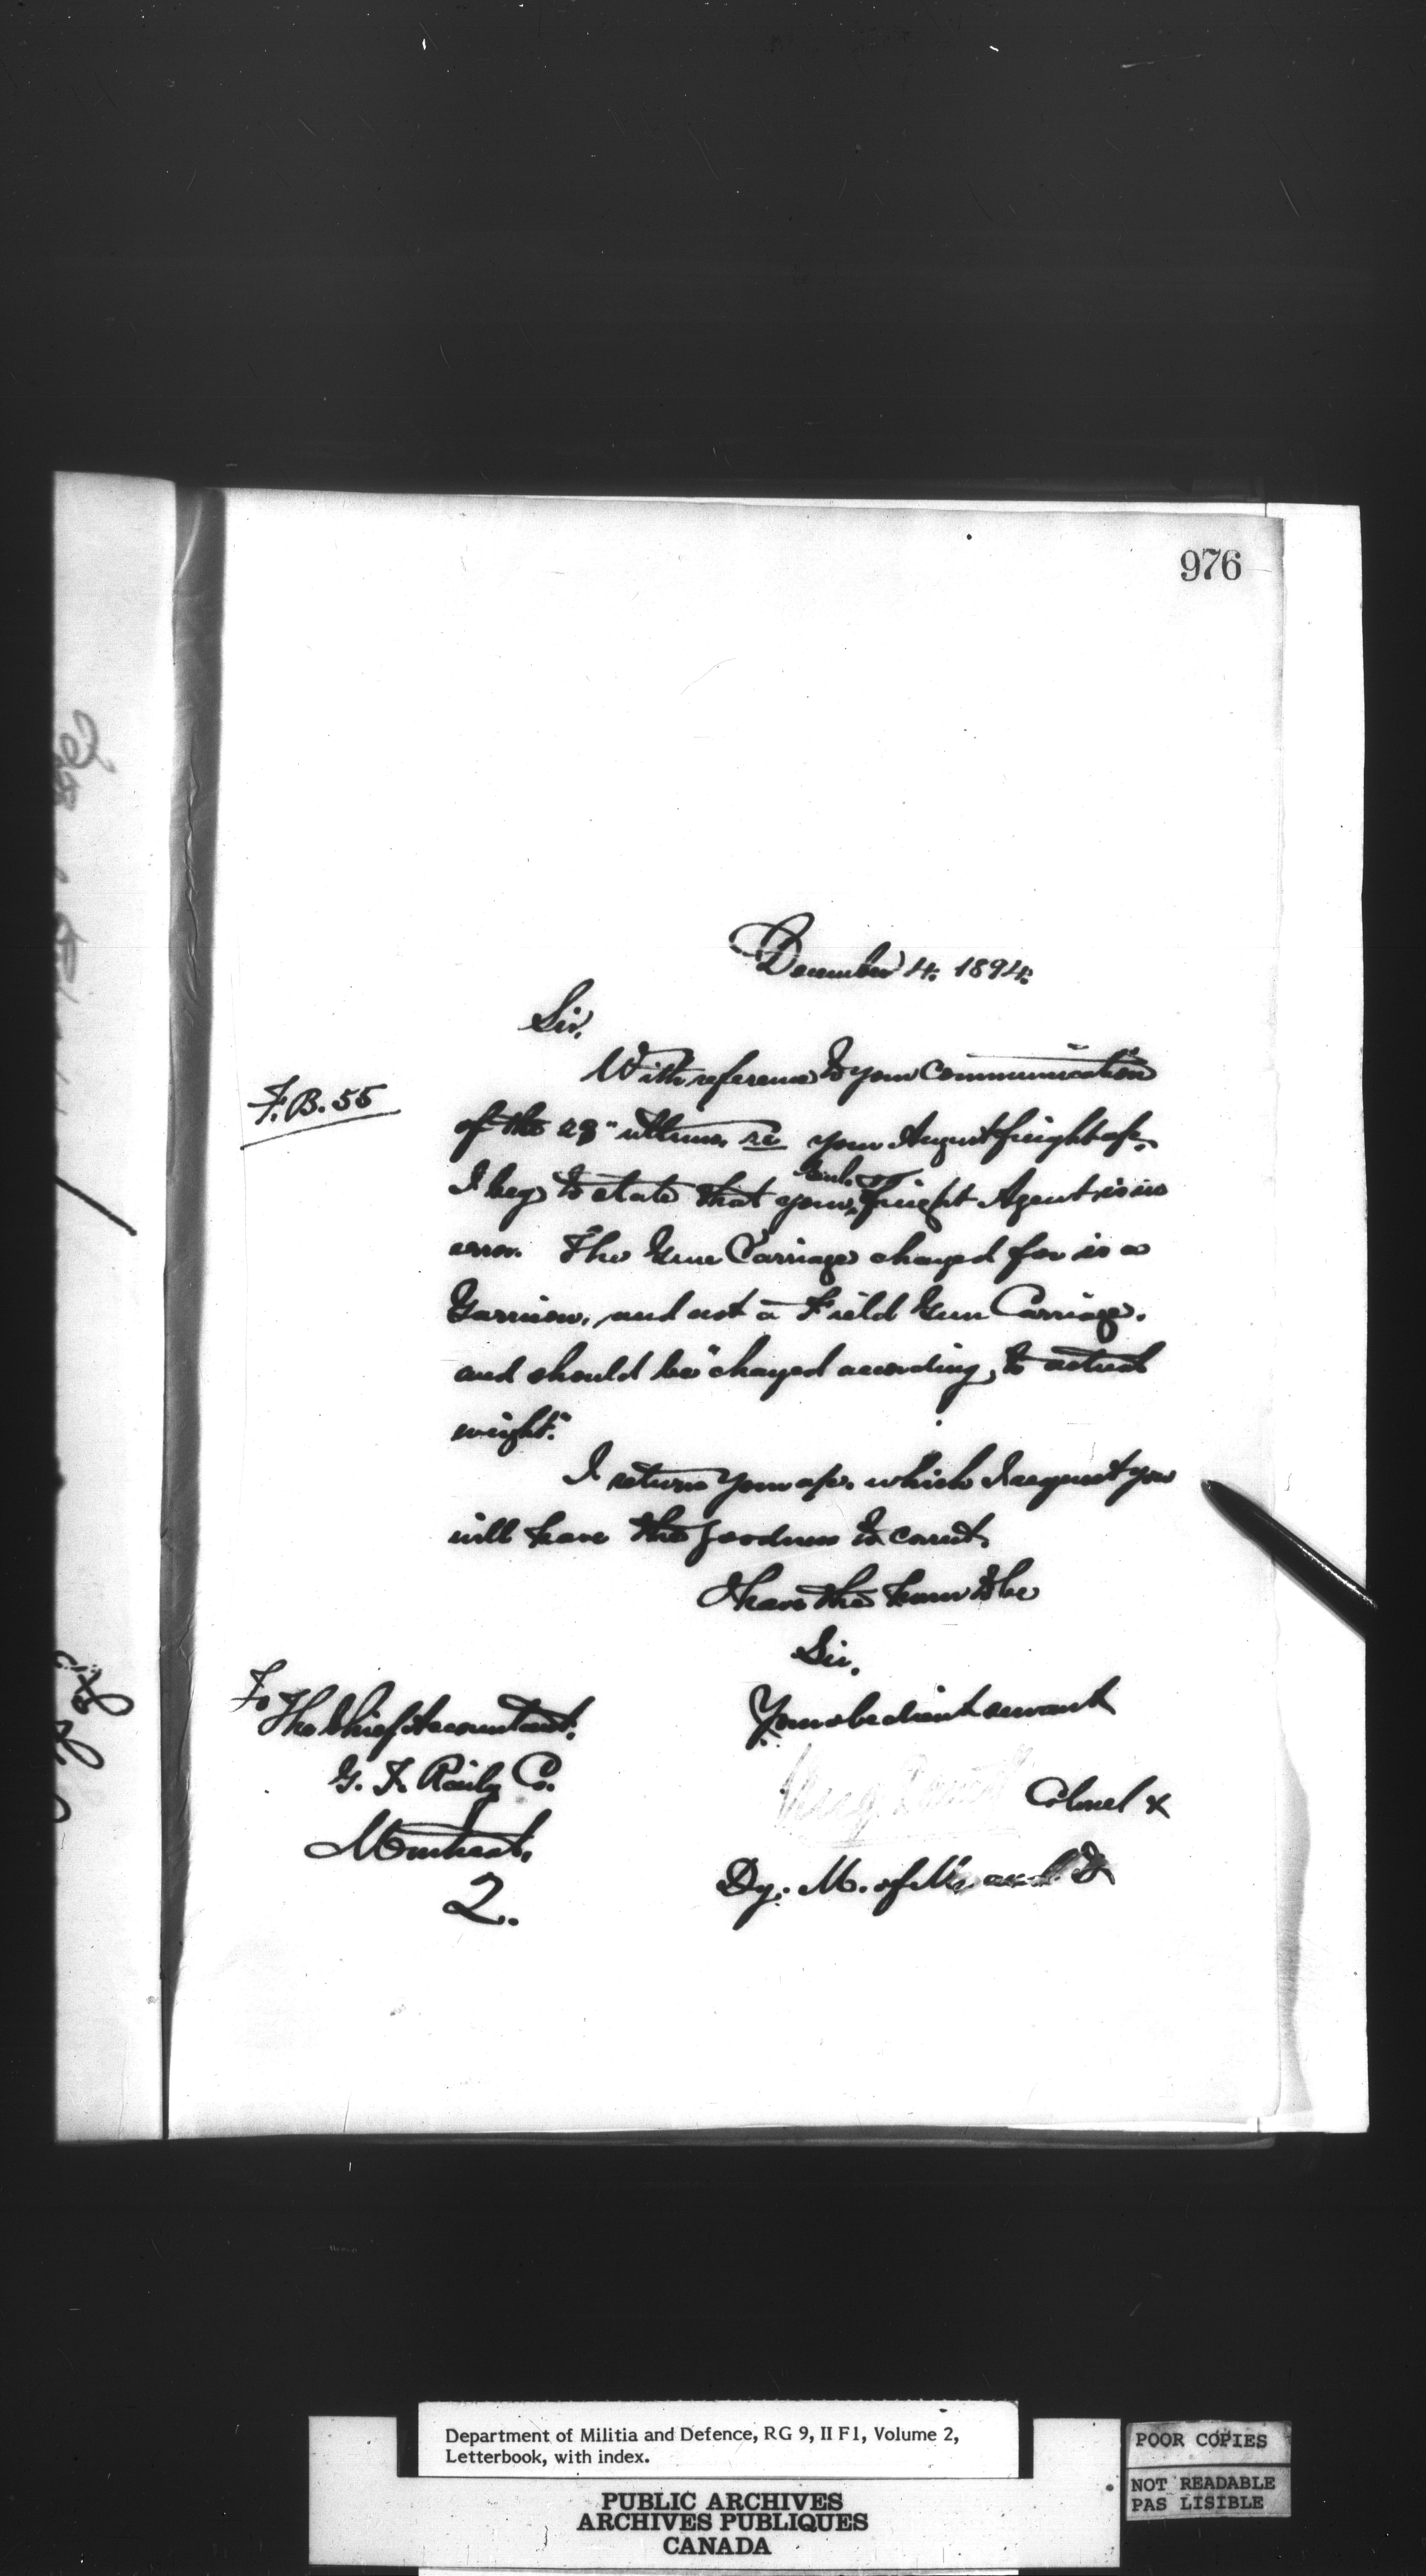 976
December 4. 1894.
Sir,
With reference to your communication
F.B. 55
of the 28" ultimo, re your August freight a/c.
I beg to state that your freight Agent is in
error. The Gun Carriage charged for is a
Garrison, and not a Field Gun Carriage,
and should be "charged according to actual
weight."
I return your a/c. which I request you
will have the goodness to correct.
I have the honor to be
Sir,
Your obedient servant
Colonel &
Dy. M. of M. and D
To
The Chief Accountant,
G. T. Raily Co.
Montreal,
2.
Department of Militia and Defence, RG 9, II F1, Volume 2,
Letterbook, with index.
PUBLIC ARCHIVES
ARCHIVES PUBLIQUES
CANADA
POOR COPIES
NOT READABLE
PAS LISIBLE